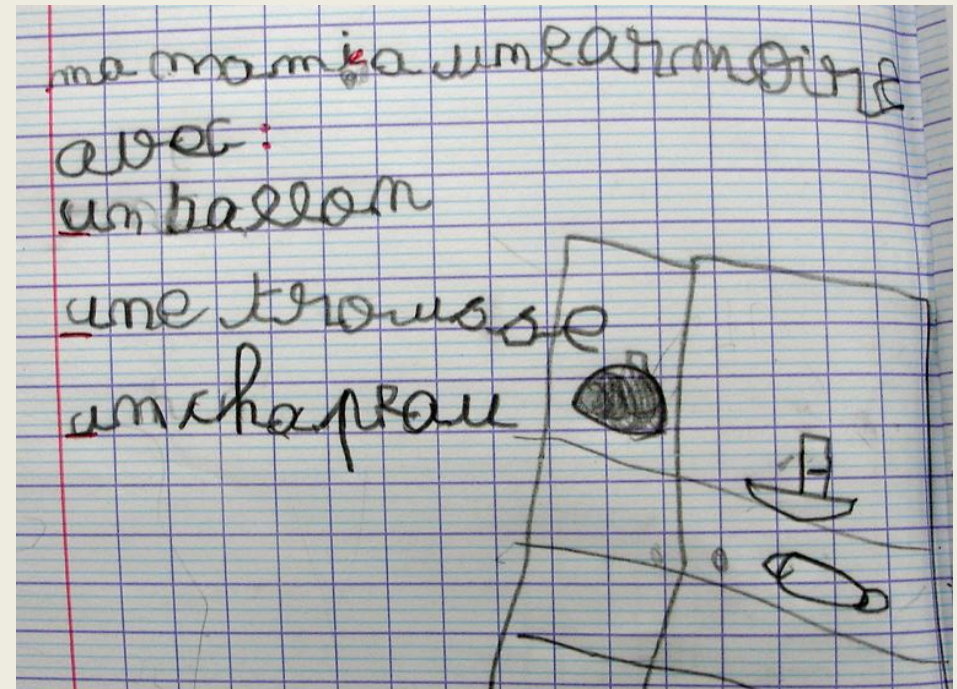 ma mamie a une armoire
avec :
un ballon
une trousse
un chapeau